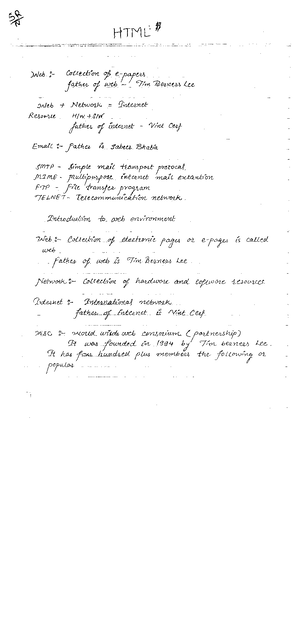 HTML
Web :- Collection of e-papers
father of web - Tim Berness Lee
Web + Network = Internet
Resource H/w + S/w
father of internet - Vint Cerf
Email :- Father is Sabeer Bhatia
SMTP - Simple mail transport protocal
MIME - Multipurpose internet mail extantion
FTP - File transfer program
TELNET - Telecommunication network
Introduction to web environment
Web :- Collection of electronic pages or e-pages is called
web
Father of web is Tim Berness Lee
Network :- Collection of hardware and software resources
Internet :- International network
father of internet is Vint Cerf
W3C :- World wide web consortium (partnership)
It was founded in 1994 by Tim berness Lee.
It has four hundred plus members the following or
popular